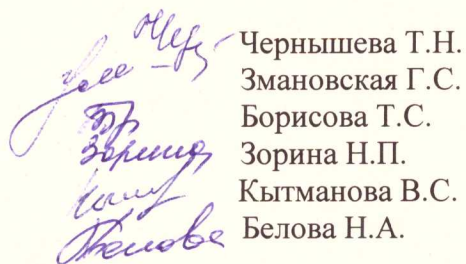 Чернышева Т.Н.
Змановская Г.С.
Борисова Т.С.
Зорина Зорина Н.П.
Кытманова В.С.
Белова Белова Н.А.